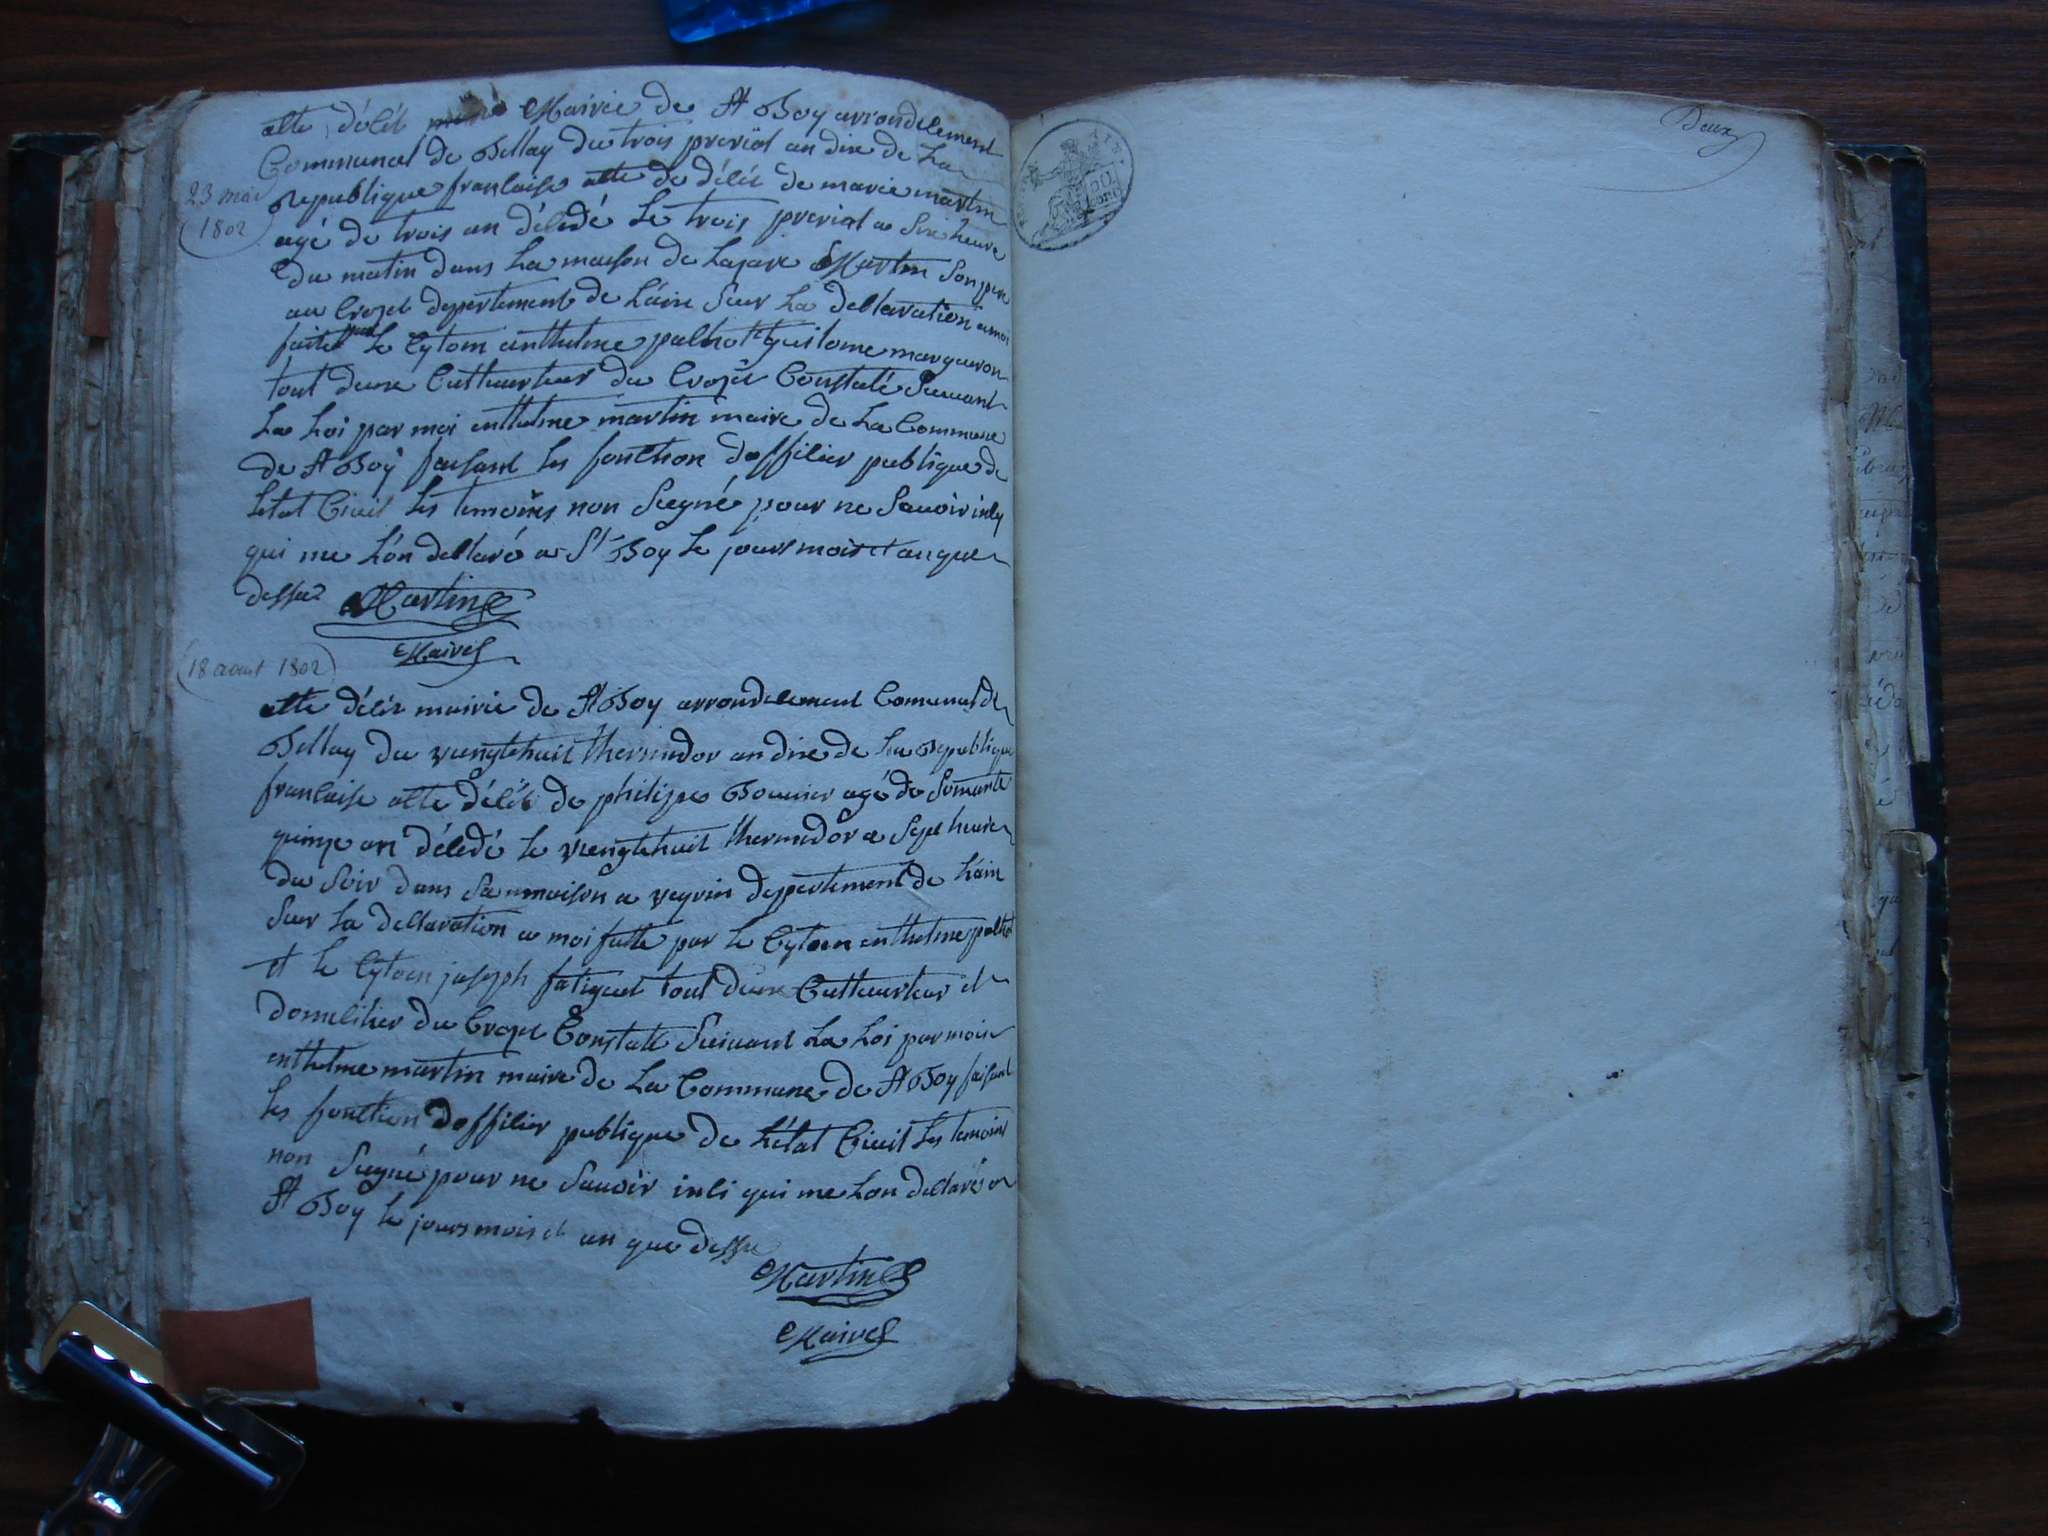 acte délét Mairie de St Boy arrondicement
Communal de Bellay du trois prerial an dix de La
Republique francaise acte de délét de marie martin
agé de trois an délédé Le trois prerial a Six heure
Du matin dans La maison de Lazare Martin Son pere
au Crozet deppertement de L'ain Sur La declaration a moi
faitte par Le Cytoen anthelme palliot et guilome margueron
tout deux Culthuvteur du Crozet Constaté Suivant
La Loi par moi enthelme martin maire de La Commune
de St Boy faisant Les fonction dofficier publique de
Letat Civil Les temoins non Siegné pour ne Savoir
qui me L'on declaré a St Boy Le jours mois et an que
dessu Martin
Maire
23 mai
1802
18 aout 1802
acte délét mairie de St Boy arrondicement Comunal de
Bellay du viengtehuit thermidor an dix de La Republique
francaise acte délét de philippe agé de Soixante
quinze an délédé le viengtehuit thermidor a Sept heure
du Soir dans Sa maison a veyrin deppertement de L'ain
Sur La declaration a moi faitte par le Cytoen enthelme
et le Cytoen joseph fatiguet tout deux Culthuvteur et
domicilier du Crozet Constaté Suivant La Loi par moi
enthelme martin maire de La Commune de St Boy faisant
les fonction dofficier publique de L'état Civil Les temoins
non Siegné pour ne Savoir qui me Lon declaré a
St Boy le jours mois et an que dessu
Martin
Maire
Deux